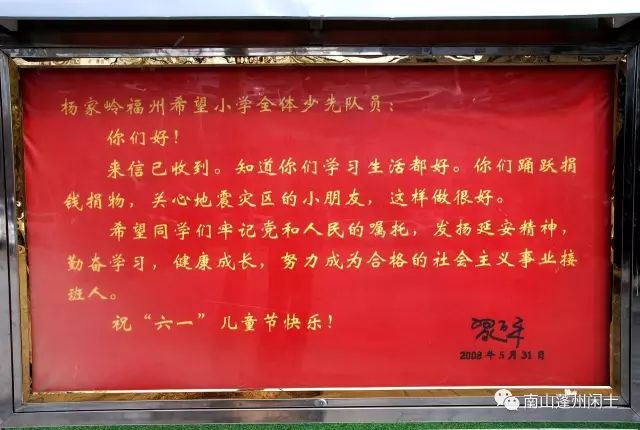 杨家岭福州希望小学全体少先队员：
你们好！
来信已收到。知道你们学习生活都好。你们踊跃捐
钱捐物，关心地震灾区的小朋友，这样做很好。
希望同学们牢记党和人民的嘱托，发扬延安精神，
勤奋学习，健康成长，努力成为合格的社会主义事业接
班人。
祝“六一”儿童节快乐！
2008年5月31日
南山蓬州闲士